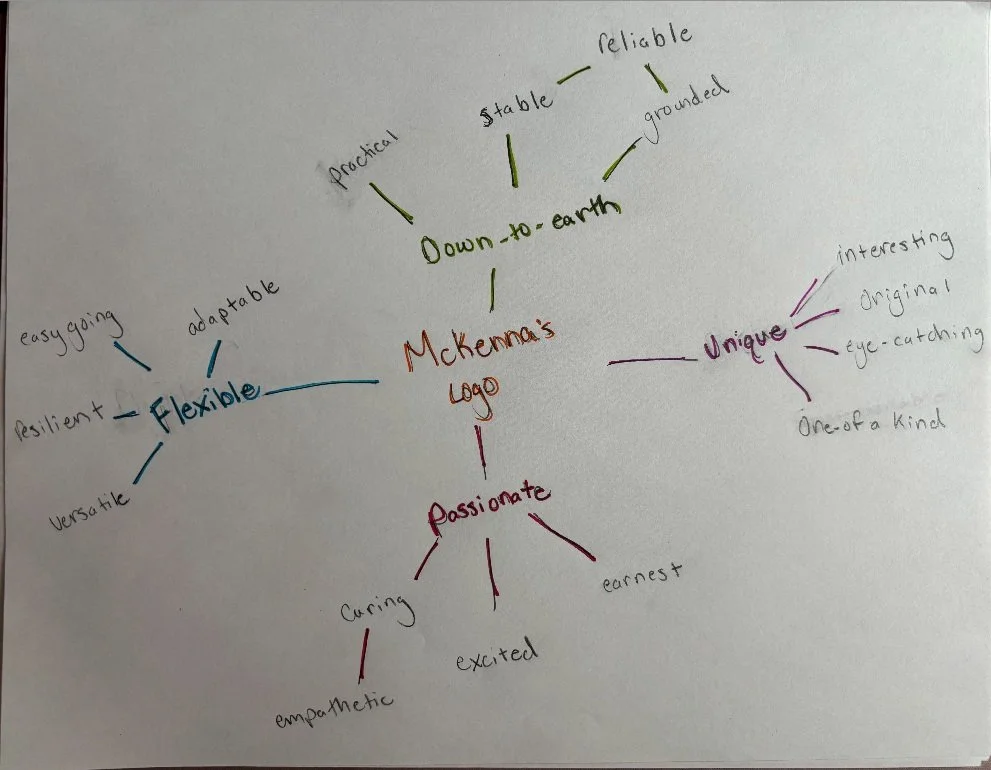 reliable
stable
grounded
practical
Down-to-earth
interesting
original
eye-catching
One-of a kind
Unique
McKenna's
Logo
easygoing
adaptable
resilient
Flexible
versatile
Passionate
Caring
excited
earnest
empathetic